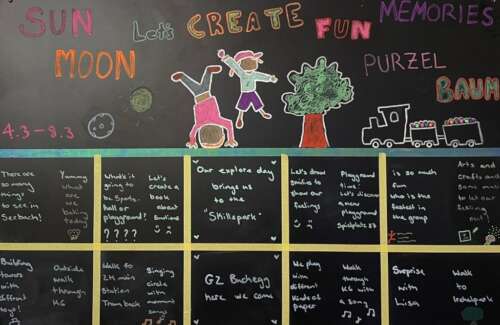 SUN
MOON
Let's CREATE FUN
MEMORIES
PURZEL
BAUM
4.3-8.3
There are
so many
things
to see in
Seebach!
Yummy
what
are we
baking
today
What's it
going to
be Sports-
hall or
playground?
? ? ? ?
Let's
create a
book
about
Emotions
Our explore day
brings us
to the
"Skillspark"
Let's draw
smilies to
show our
feelings
Playground
time!
Let's discover
a new
playground
Spielplatz 87
is so much
fun
who is the
fastest in
the group
Arts and
crafts and
to let our
out
Building
towers
with
diffrent
toys!
Outside
walk
through
KG
Walk to
ZH main
Station
Tram back
Singing
circle
with
moment
songs
GZ Buchegg
here we come
We play
with
diffrent
kinds of
paper
Walk
through
KG with
a song
Surprise
with
Lisa
Walk
to